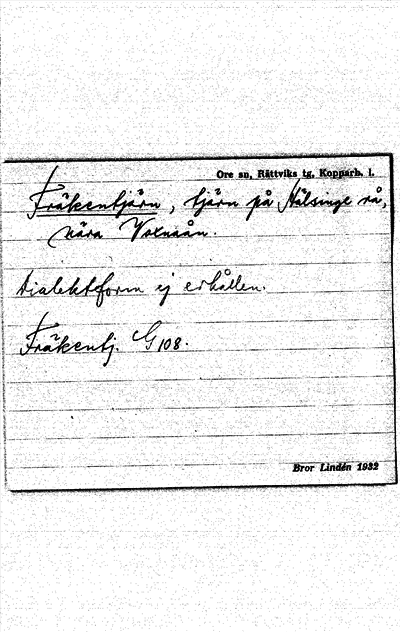 Ore sn, Rättviks tg, Kopparb. l.
Fräkentjärn, tjärn på Hälsinge rå,
nära Voxnaån.
Dialektform ej erhållen.
Fräkentj. G 108.
Bror Lindén 1932